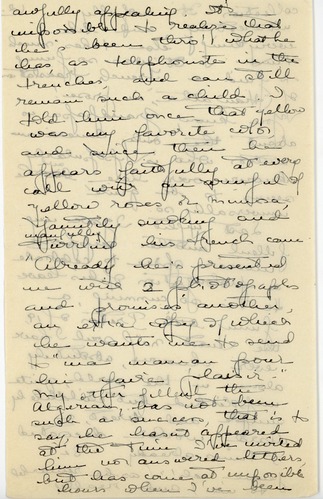 awfully appealing. It's
impossible to realize that
he's been thro' what he
has as telephoniste in the
trenches and can still
remain such a child. I
told him once that yellow
was my favorite color
and since then he
appears faithfully at every
call with an armful of
yellow roses or mimosa,
jauntily smoking and
manfully
twirling his trench cane
Already he's presented
me with 2 photographs
and promises another,
an extra copy of which
he wants me to send
to "ma maman pour
lui faire plaisir."
My other filleul the
Algerian has not been
such a success that is to
say, he hasn't appeared
at the time I've invited
him nor answered letters
but has come at impossible
hours when I've been